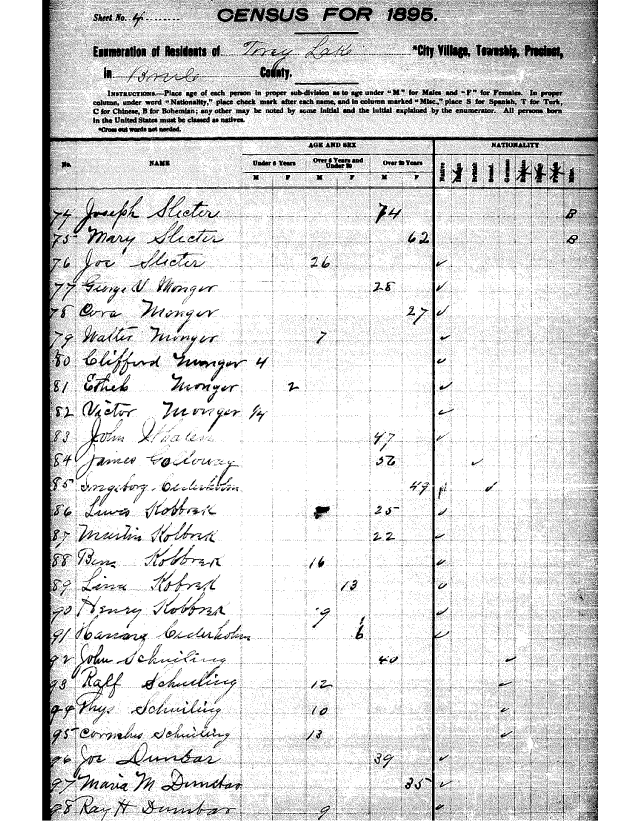 Sheet No. 4
CENSUS FOR 1895.
Enumeration of Residents of Troy Lake *City Village, Township, Precinct,
in Brule County.
INSTRUCTIONS.—Place age of each person in proper sub-division as to age under "M" for Males and "F" for Females. In proper
column, under word "Nationality," place check mark after each name, and in column marked "Misc.," place S for Spanish, T for Turk,
C for Chinese, B for Bohemian; any other may be noted by some initial and the initial explained by the enumerator. All persons born
in the United States must be classed as natives.
*Cross out words not needed.
AGE AND SEX NATIONALITY
No. NAME Under 5 Years Over 5 Years and Under 20 Over 20 Years Native
M F M F M F
74 Joseph Slecter 74 B
75 Mary Slecter 62 B
76 Joe Slecter 26 ✓
77 George V Monger 28 ✓
78 Cora Monger 27 ✓
79 Walter Monger 7 ✓
80 Clifford Monger 4 ✓
81 Ethel Monger 2 ✓
82 Victor Monger ✓
83 John Whalen 47 ✓
84 James Galloway 56 ✓
85 Ingeborg Cederholm 49 ✓
86 Kobbrek 25 ✓
87 Martin Kolbrek 22 ✓
88 Ben Kobbrek 16 ✓
89 Lina Kobrek 13 ✓
90 Henry Kobbrek 9 ✓
91 Cederholm 6 ✓
92 John Schuiling 40 ✓
93 Ralf Schuiling 12 ✓
94 Thys Schuiling 10 ✓
95 Cornelus Schuiling 13 ✓
96 Joe Dunbar 39 ✓
97 Maria M Dunbar 35 ✓
98 Ray H Dumbar 9 ✓